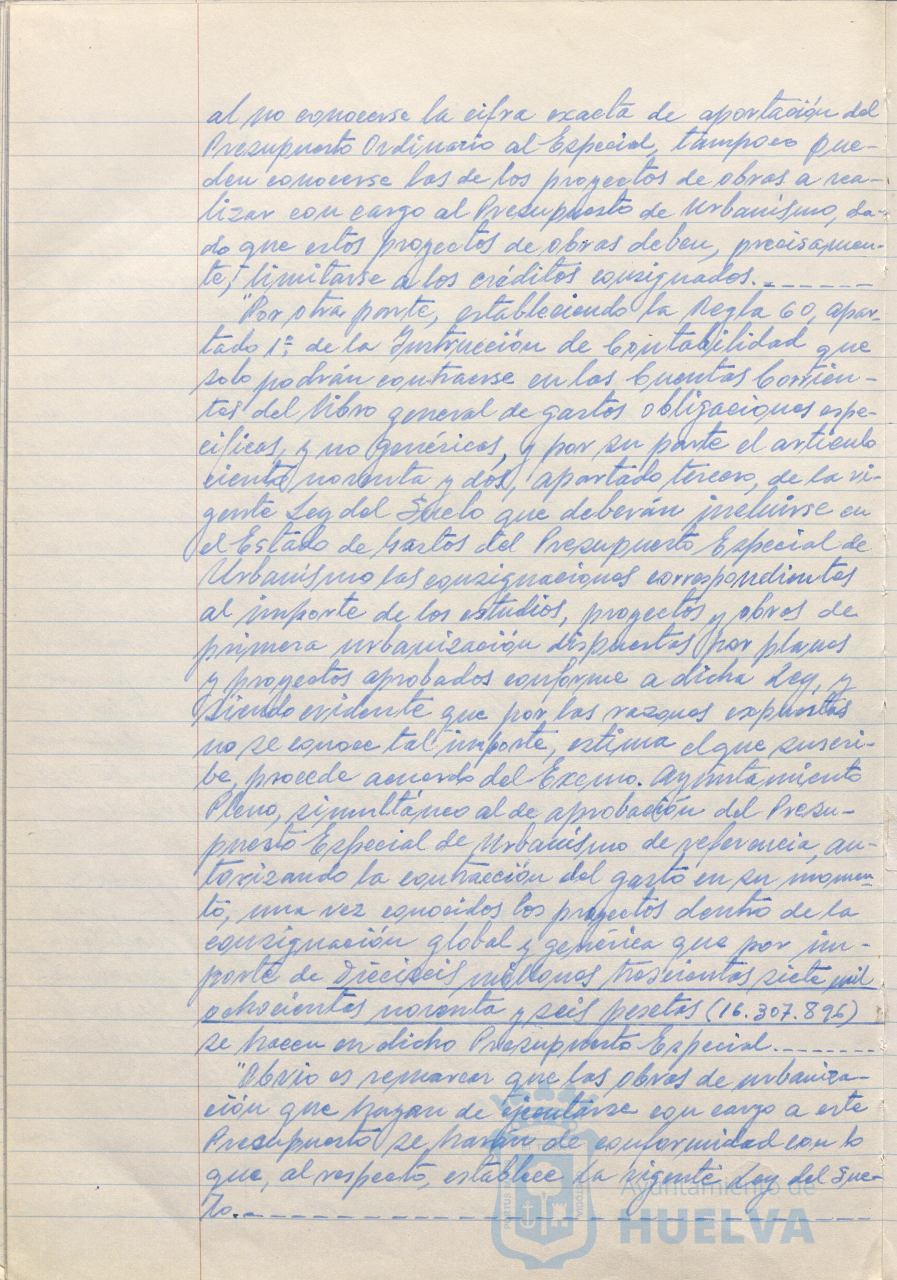 al no conocerse la cifra exacta de aportación del
Presupuesto Ordinario al Especial, tampoco pue-
den conocerse las de los proyectos de obras a rea-
lizar con cargo al Presupuesto de Urbanismo, da-
do que estos proyectos de obras deben, precisamen-
te, limitarse a los créditos consignados.-------
"Por otra parte, estableciendo la Regla 60, apar-
tado 1º de la Instrucción de Contabilidad que
solo podrán contraerse en las Cuentas Corrien-
tes del libro general de gastos obligaciones espe-
cificas, y no genéricas, y por su parte el artículo
ciento noventa y dos, apartado tercero, de la vi-
gente Ley del Suelo que deberán incluirse en
el Estado de Gastos del Presupuesto Especial de
Urbanismo las consignaciones correspondientes
al importe de los estudios, proyectos y obras de
primera urbanización dispuestas por planes
y proyectos aprobados conforme a dicha Ley, y
siendo evidente que por las razones expuestas
no se conoce tal importe, estima el que suscri-
be, procede acuerdo del Excmo. Ayuntamiento
Pleno, simultáneo al de aprobación del Presu-
puesto Especial de Urbanismo de referencia, au-
torizando la contracción del gasto en su momen-
to, una vez conocidos los proyectos dentro de la
consignación global y genérica que por im-
porte de Dieciseis millones trescientas siete mil
ochocientas noventa y seis pesetas (16.307.896)
se hacen en dicho Presupuesto Especial.--------
"Obvio es remarcar que las obras de urbaniza-
ción que hayan de ejecutarse con cargo a este
Presupuesto se harán de conformidad con lo
que, al respecto, establece la vigente Ley del Sue-
lo.--------
Ayuntamiento de
HUELVA